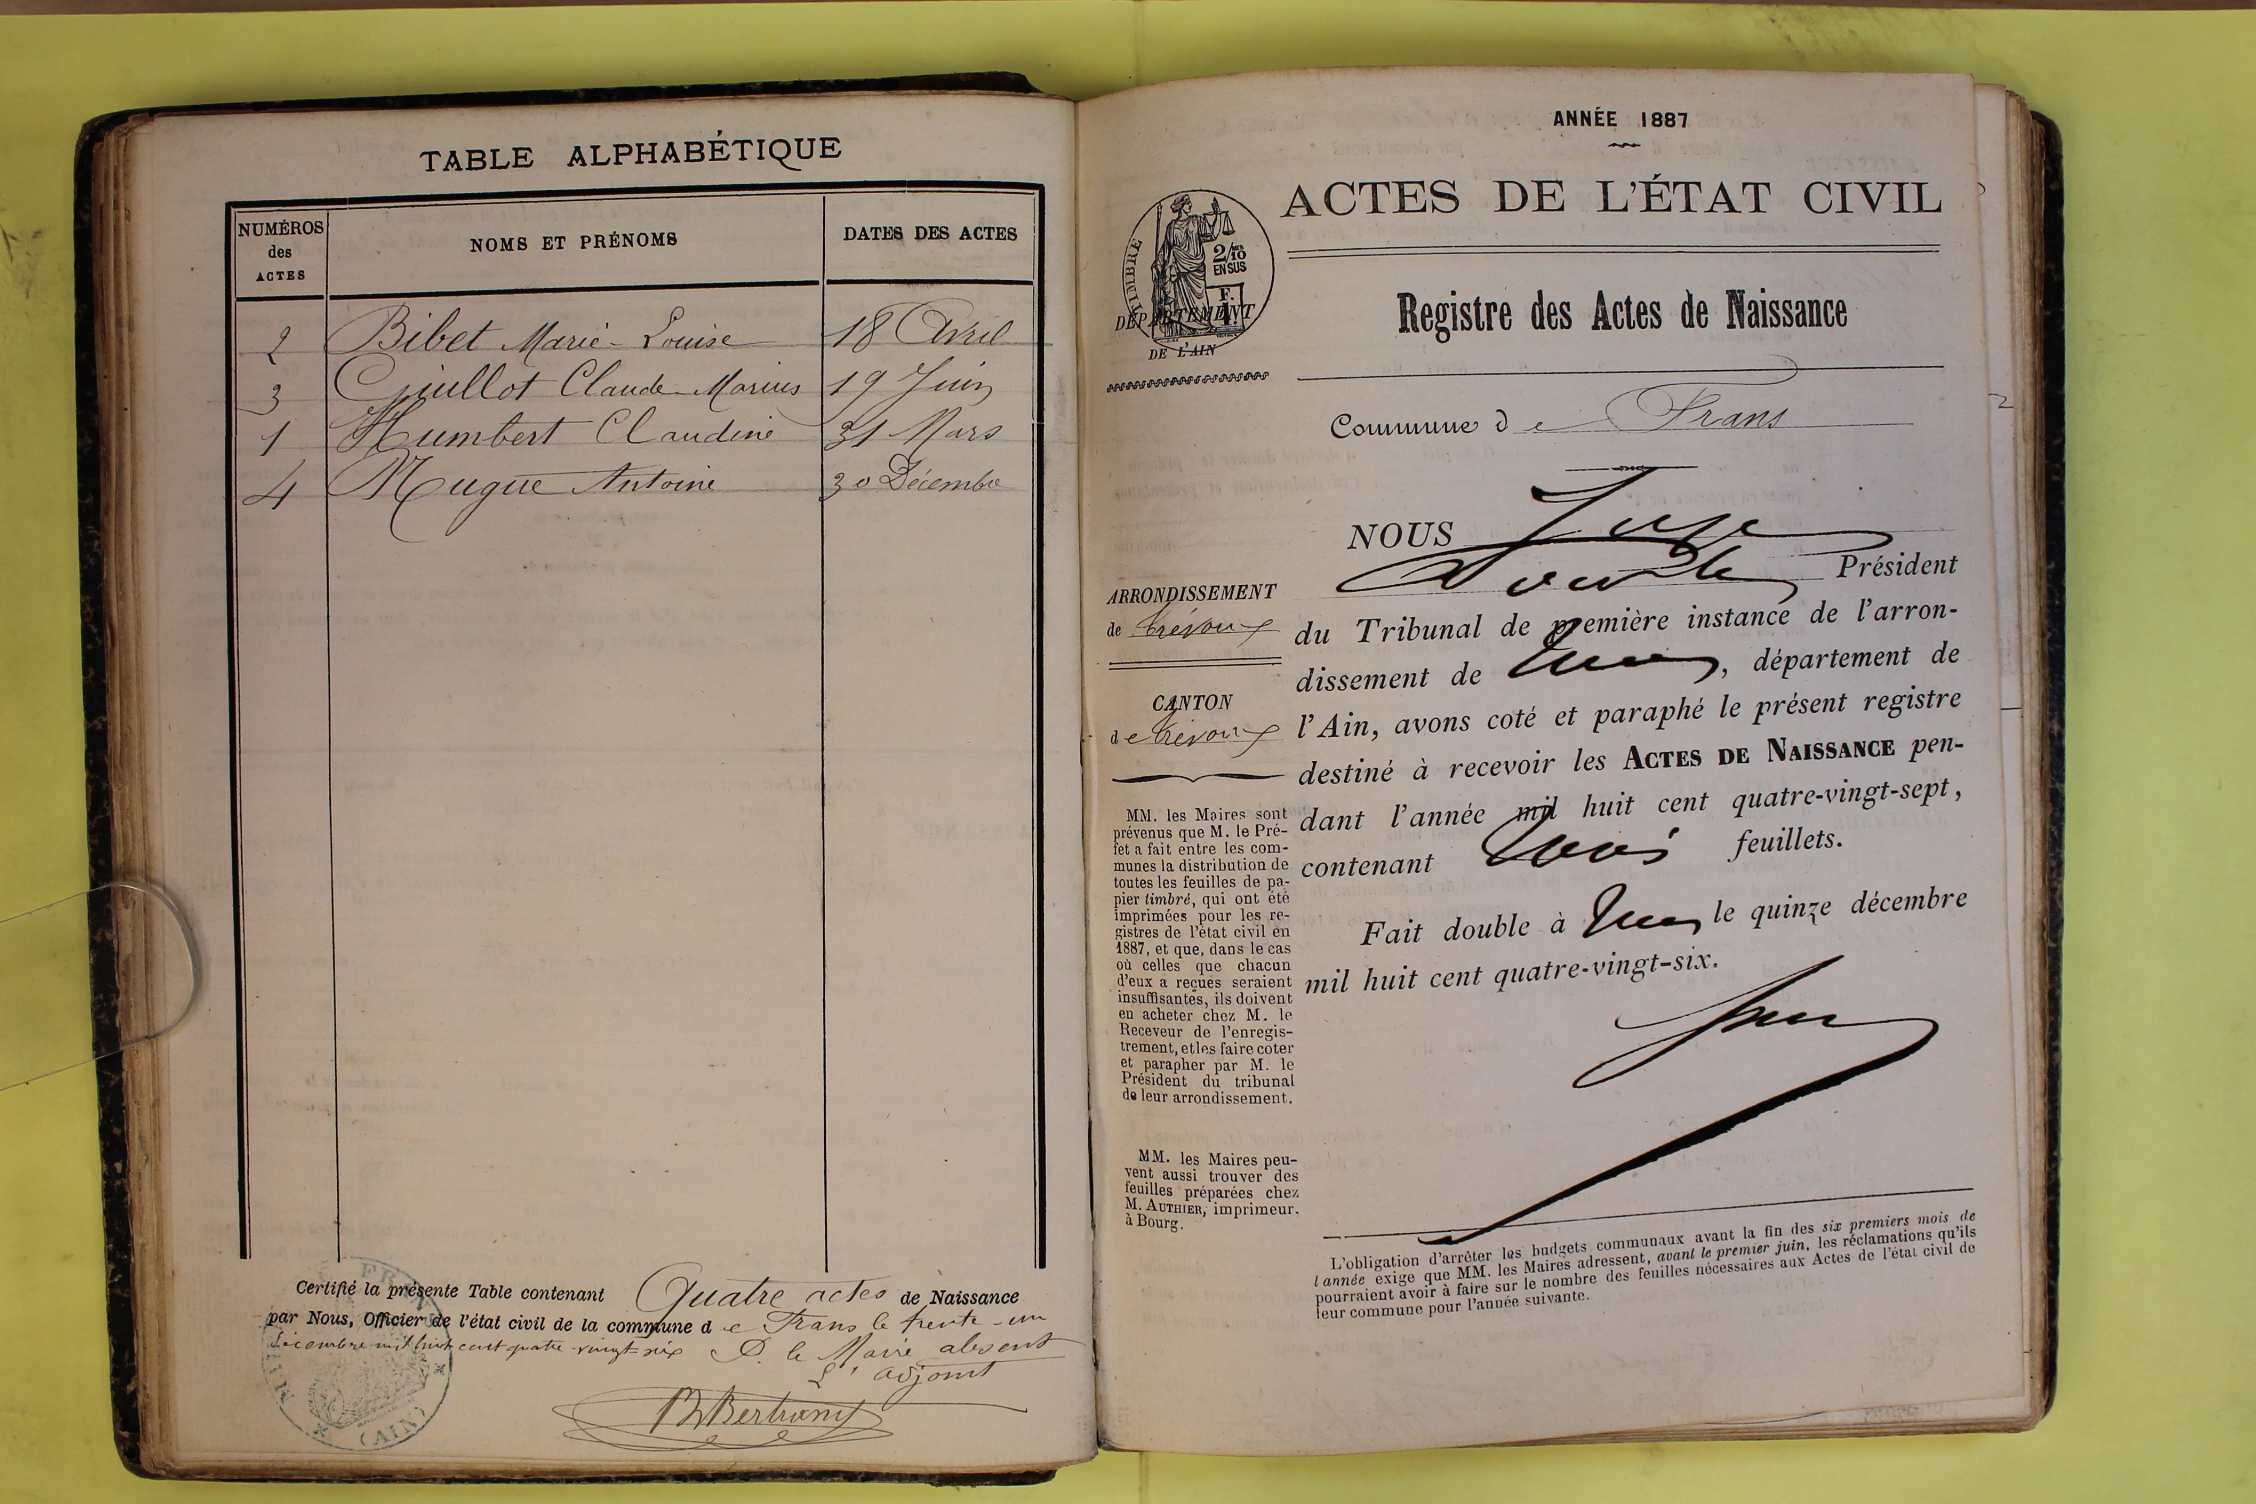 TABLE ALPHABÉTIQUE
NUMÉROS
des
ACTES
NOMS ET PRÉNOMS
DATES DES ACTES
2 Bibet Marie-Louise 18 Avril
3 Guillot Claude-Marius 19 Juin
1 Humbert Claudine 31 Mars
4 Mugue Antoine 30 Décembre
Certifié la présente Table contenant Quatre actes de Naissance
par Nous, Officier de l'état civil de la commune de Frans le trente-un
Décembre mil huit cent quatre-vingt-six P. le Maire absent
L'adjoint
Bertrand
(AIN)
ANNÉE 1887
ACTES DE L'ÉTAT CIVIL
TIMBRE
2/10
EN SUS
F.
DÉPARTEMENT
DE L'AIN
Registre des Actes de Naissance
Commune de Frans
NOUS
Président
du Tribunal de première instance de l'arron-
dissement de , département de
l'Ain, avons coté et paraphé le présent registre
destiné à recevoir les ACTES DE NAISSANCE pen-
dant l'année mil huit cent quatre-vingt-sept,
contenant trois feuillets.
Fait double à le quinze décembre
mil huit cent quatre-vingt-six.
ARRONDISSEMENT
de Trévoux
CANTON
de Trévoux
MM. les Maires sont
prévenus que M. le Pré-
fet a fait entre les com-
munes la distribution de
toutes les feuilles de pa-
pier timbré, qui ont été
imprimées pour les re-
gistres de l'état civil en
1887, et que, dans le cas
où celles que chacun
d'eux a reçues seraient
insuffisantes, ils doivent
en acheter chez M. le
Receveur de l'enregis-
trement, et les faire coter
et parapher par M. le
Président du tribunal
de leur arrondissement.
MM. les Maires peu-
vent aussi trouver des
feuilles préparées chez
M. AUTHIER, imprimeur,
à Bourg.
L'obligation d'arrêter les budgets communaux avant la fin des six premiers mois de
l'année exige que MM. les Maires adressent, avant le premier juin, les réclamations qu'ils
pourraient avoir à faire sur le nombre des feuilles nécessaires aux Actes de l'état civil de
leur commune pour l'année suivante.